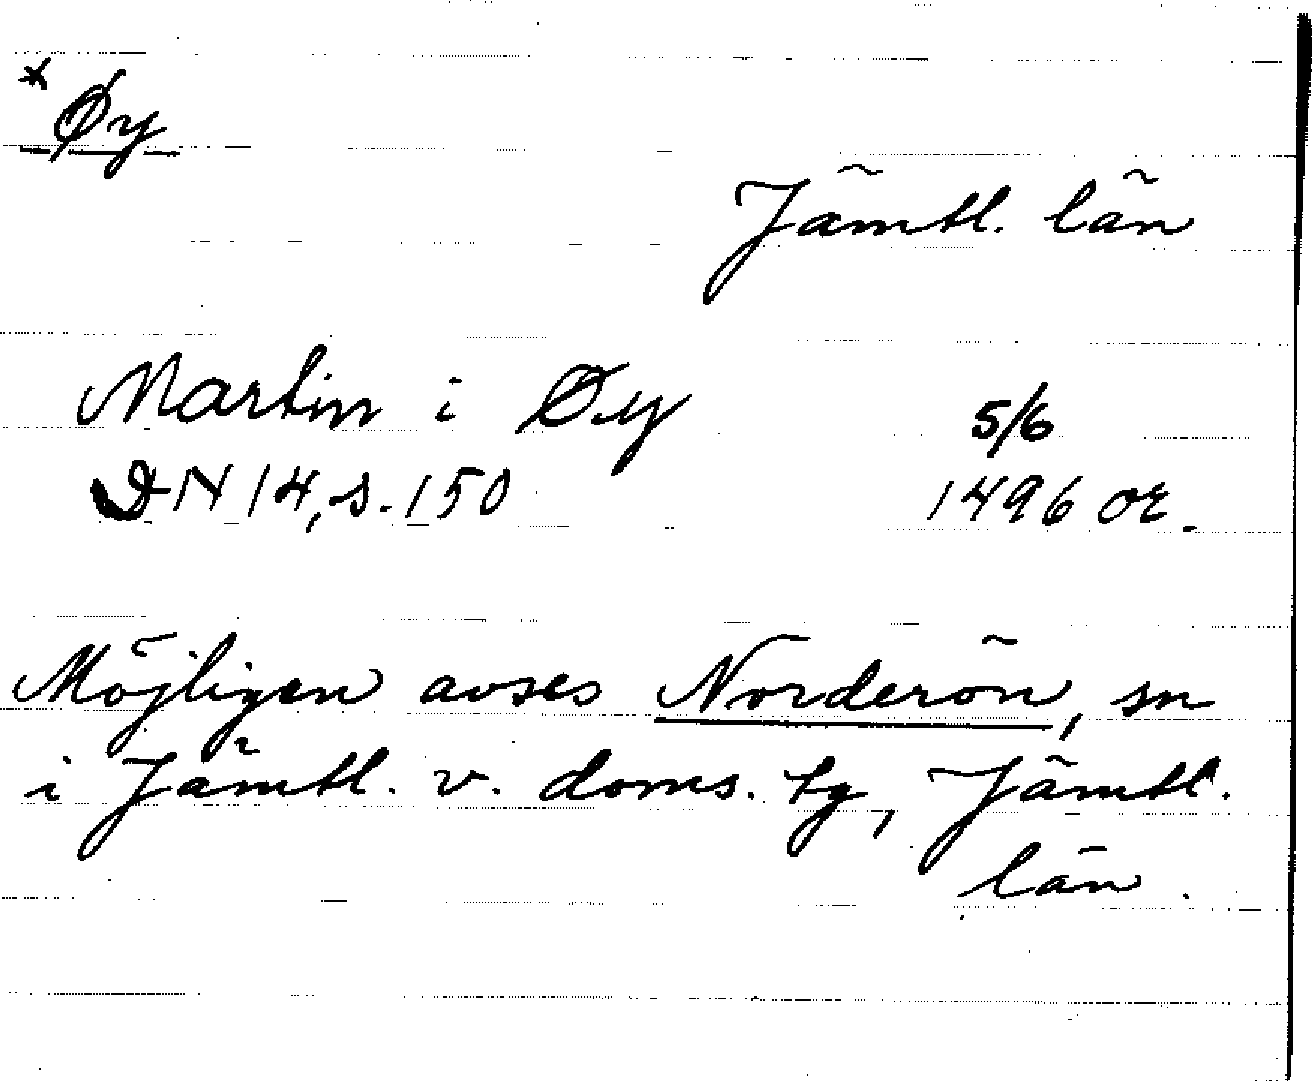 *Øy
Jämtl. län
Martin i Øy 5/6
DN 14, s. 150 1496 or.
Möjligen avses Norderön, sn
i Jämtl. v. doms. tg, Jämtl.
län.